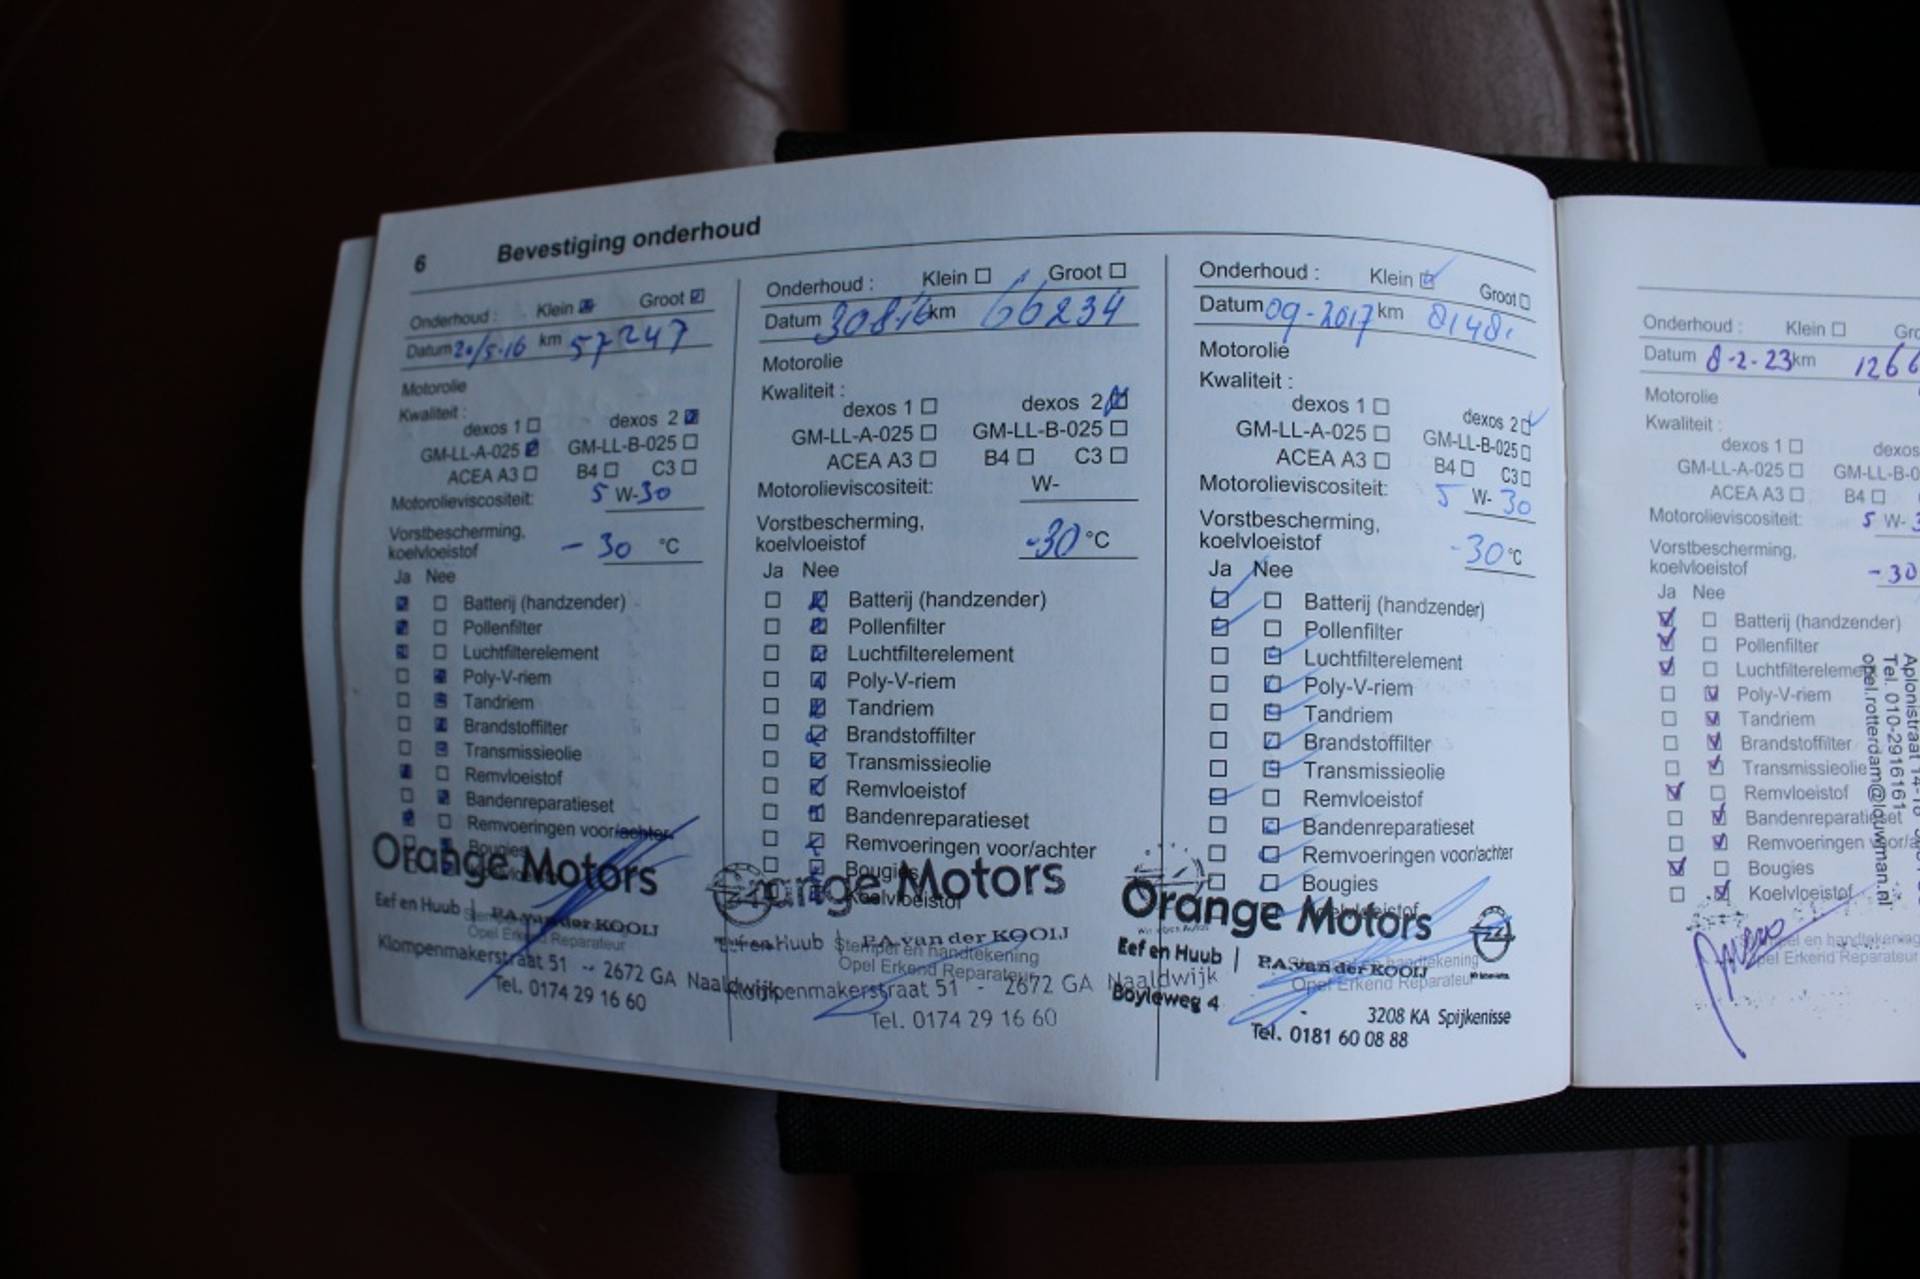 6 Bevestiging onderhoud
Onderhoud : Klein Groot
Datum 20/5-16 km 57247
Motorolie
Kwaliteit :
dexos 1 dexos 2
GM-LL-A-025 GM-LL-B-025
ACEA A3 B4 C3
Motorolieviscositeit: 5 W-30
Vorstbescherming,
koelvloeistof - 30 °C
Ja Nee
Batterij (handzender)
Pollenfilter
Luchtfilterelement
Poly-V-riem
Tandriem
Brandstoffilter
Transmissieolie
Remvloeistof
Bandenreparatieset
Remvoeringen voor/achter
Bougies
Orange Motors
Eef en Huub | P.A. van der KOOIJ
Opel Erkend Reparateur
Klompenmakerstraat 51 - 2672 GA Naaldwijk
Tel. 0174 29 16 60
Onderhoud : Klein Groot
Datum 30 8-16 km 66234
Motorolie
Kwaliteit :
dexos 1 dexos 2
GM-LL-A-025 GM-LL-B-025
ACEA A3 B4 C3
Motorolieviscositeit: W-
Vorstbescherming,
koelvloeistof -30 °C
Ja Nee
Batterij (handzender)
Pollenfilter
Luchtfilterelement
Poly-V-riem
Tandriem
Brandstoffilter
Transmissieolie
Remvloeistof
Bandenreparatieset
Remvoeringen voor/achter
Bougies
Koelvloeistof
Orange Motors
Eef en Huub | P.A. van der KOOIJ
Stempel en handtekening
Opel Erkend Reparateur
Klompenmakerstraat 51 - 2672 GA Naaldwijk
Tel. 0174 29 16 60
Onderhoud : Klein Groot
Datum 09-2017 km 81481
Motorolie
Kwaliteit :
dexos 1 dexos 2
GM-LL-A-025 GM-LL-B-025
ACEA A3 B4 C3
Motorolieviscositeit: 5 W- 30
Vorstbescherming,
koelvloeistof -30 °C
Ja Nee
Batterij (handzender)
Pollenfilter
Luchtfilterelement
Poly-V-riem
Tandriem
Brandstoffilter
Transmissieolie
Remvloeistof
Bandenreparatieset
Remvoeringen voor/achter
Bougies
Koelvloeistof
Orange Motors
Eef en Huub | P.A. van der KOOIJ
Opel Erkend Reparateur
Boyleweg 4
3208 KA Spijkenisse
Tel. 0181 60 08 88
Onderhoud : Klein
Datum 8-2-23 km 1266
Motorolie
Kwaliteit :
dexos 1 dexos
GM-LL-A-025 GM-LL-B-0
ACEA A3 B4
Motorolieviscositeit: 5 W-
Vorstbescherming,
koelvloeistof -30
Ja Nee
Batterij (handzender)
Pollenfilter
Luchtfiltereleme
Poly-V-riem
Tandriem
Brandstoffilter
Transmissieolie
Remvloeistof
Bandenreparatieset
Remvoeringen voor/a
Bougies
Koelvloeistof
Stempel en handtekening
Opel Erkend Reparateur
Aplonistraat 14-16
Tel. 010-2916161
opel.rotterdam@louwman.nl